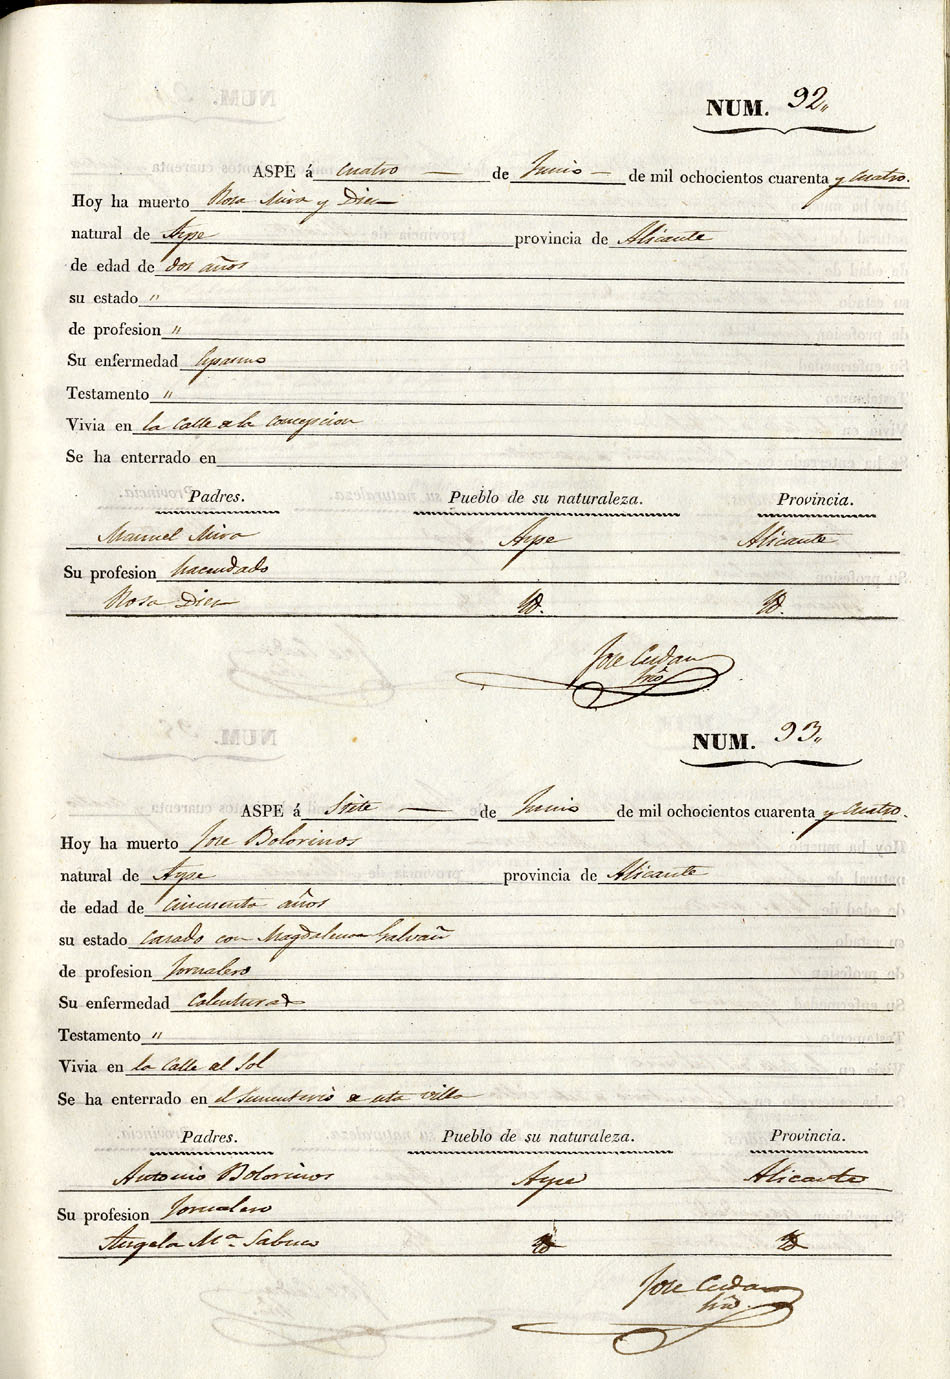 NUM. 92,,
ASPE á cuatro — de Junio — de mil ochocientos cuarenta y cuatro.
Hoy ha muerto Rosa Mira y Diez
natural de Aspe provincia de Alicante
de edad de dos años
su estado "
de profesion "
Su enfermedad Espasmo
Testamento "
Vivia en la Calle de la Concepcion
Se ha enterrado en
Padres. Pueblo de su naturaleza. Provincia.
Manuel Mira Aspe Alicante
Su profesion hacendado
Rosa Diez Yd. Yd.
Jose Cerdan
NUM. 93,,
ASPE á Siete — de Junio de mil ochocientos cuarenta y cuatro.
Hoy ha muerto Jose Bolorinos
natural de Aspe provincia de Alicante
de edad de cincuenta años
su estado casado con Magdalena Galvañ
de profesion Jornalero
Su enfermedad Calenturas
Testamento "
Vivia en la Calle del Sol
Se ha enterrado en el Sementerio de esta villa
Padres. Pueblo de su naturaleza. Provincia.
Antonio Bolorinos Aspe Alicante
Su profesion Jornalero
Angela Mª Sabuco Yd Yd
Jose Cerdan